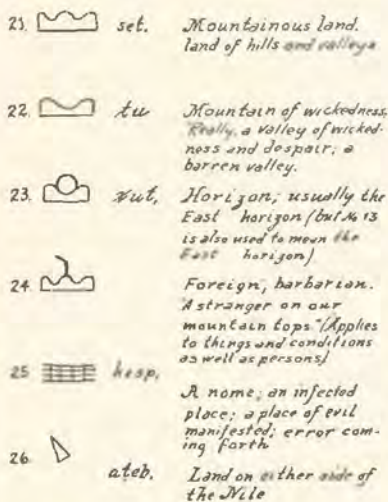 21. set. Mountainous land.
land of hills and valleys
22. tu Mountain of wickedness.
Really, a valley of wicked-
ness and despair; a
barren valley.
23. xut, Horizon; usually the
East horizon (but No 13
is also used to mean the
East horizon)
24. Foreign, barbarian.
"A stranger on our
mountain tops." (Applies
to things and conditions
as well as persons)
25 hesp,
A nome; an infected
place; a place of evil
manifested; error com-
ing forth
26.
ateb. Land on either side of
the Nile